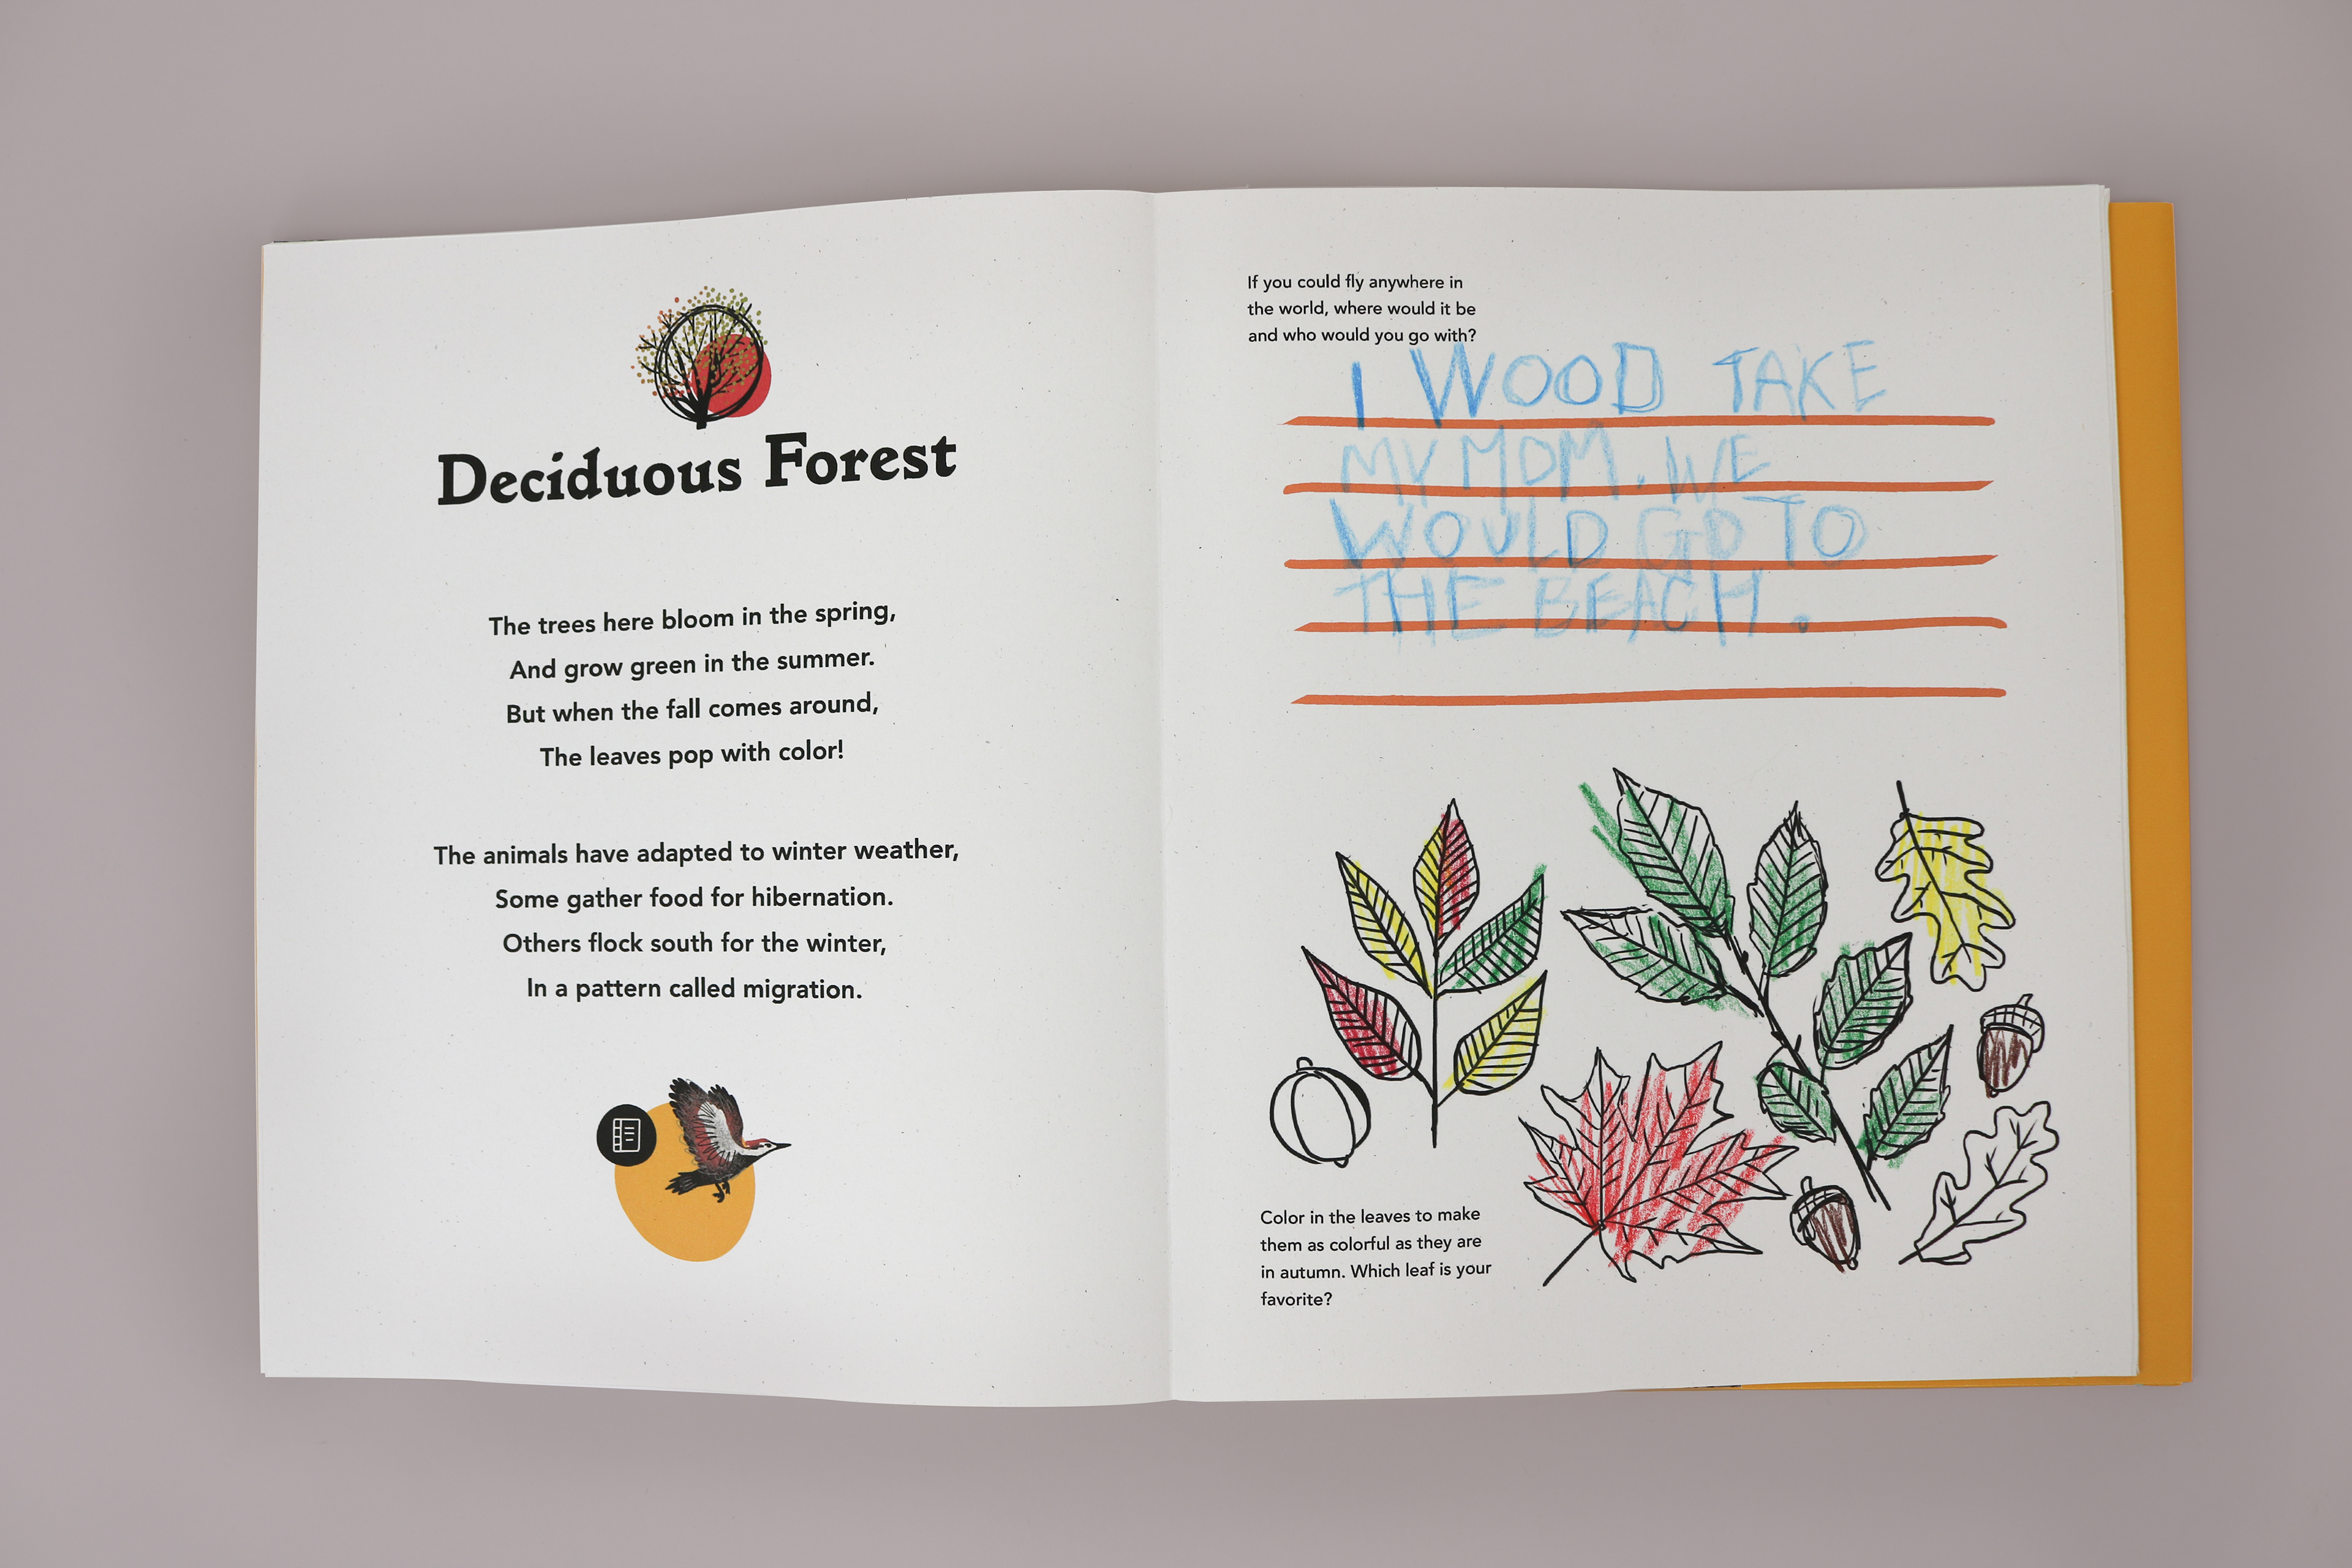 Deciduous Forest
The trees here bloom in the spring,
And grow green in the summer.
But when the fall comes around,
The leaves pop with color!
The animals have adapted to winter weather,
Some gather food for hibernation.
Others flock south for the winter,
In a pattern called migration.
If you could fly anywhere in
the world, where would it be
and who would you go with?
I WOOD TAKE
MY MOM. WE
WOULD GO TO
THE BEACH.
Color in the leaves to make
them as colorful as they are
in autumn. Which leaf is your
favorite?